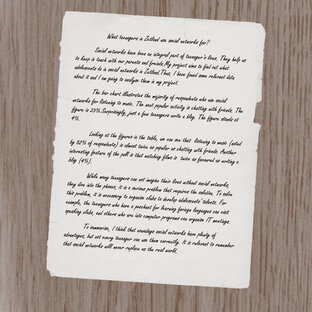 What teenagers in Zetland use social networks for?
Social networks have been an integral part of teenager's lives. They help us
to keep in touch with our parents and friends. My project aims to find out what
adolescents do in social networks in Zetland. Thus, I have found some relevant data
about it and I am going to analyse them in my project.
The bar chart illustrates the majority of respondents who use social
networks for listening to music. The next popular activity is chatting with friends. The
figure is 23%. Surprisingly, just a few teenagers write a blog. The figure stands at
4%.
Looking at the figures in the table, we can see that listening to music (voted
by 52% of respondents) is almost twice as popular as chatting with friends. Another
interesting feature of the poll is that watching films is twice as favoured as writing a
blog (4%).
While many teenagers can not imagine their lives without social networks,
they dive into the phones, it is a serious problem that requires the solution. To solve
this problem, it is necessary to organise clubs to develop adolescents' talents. For
example, the teenagers who have a penchant for learning foreign languages can visit
speaking clubs, and others who are into computer programs can organise IT meetings.
To summarise, I think that nowadays social networks have plenty of
advantages, but not every teenager can use them correctly. It is relevant to remember
that social networks will never replace us the real world.